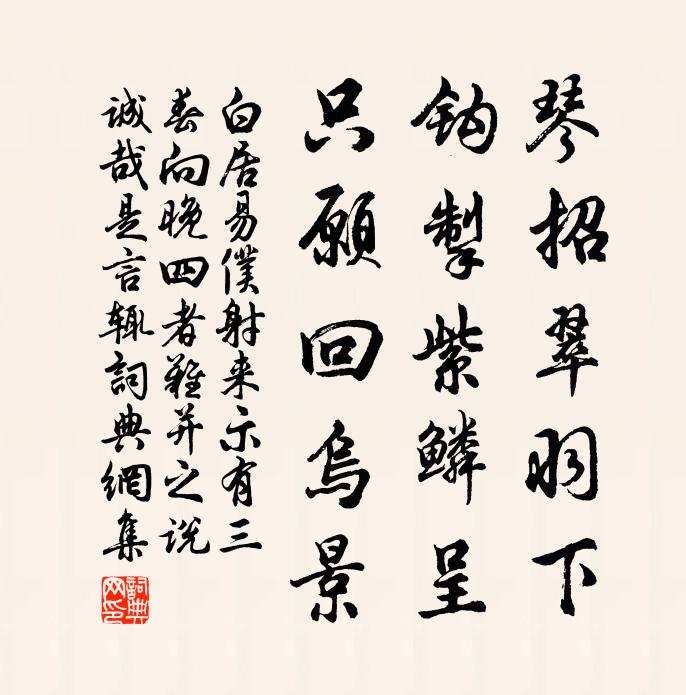 琴招翠羽下
鈎掣紫鱗呈
只願回烏景
白居易僕射来示有三
春向晚四者難并之说
誠哉是言辄詞典網集
詞典网印